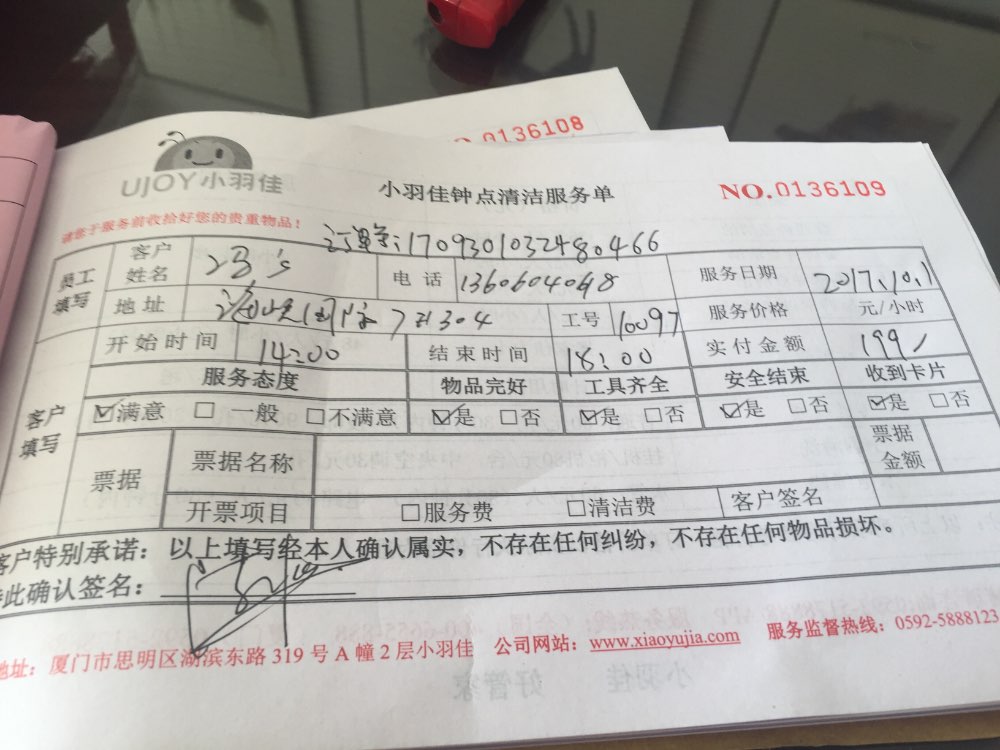 NO.0136108
UJOY小羽佳
小羽佳钟点清洁服务单
NO.0136109
请您于服务前收拾好您的贵重物品!
订单号:170930103248０466
员工填写 客户姓名 冯's 电话 1360604048 服务日期 2017.10.1
地址 7-304 工号 10097 服务价格 元/小时
开始时间 14:00 结束时间 18:00 实付金额 199
客户填写 服务态度 物品完好 工具齐全 安全结束 收到卡片
☑满意 □一般 □不满意 ☑是 □否 ☑是 □否 ☑是 □否 ☑是 □否
票据 票据名称 票据金额
开票项目 □服务费 □清洁费 客户签名
客户特别承诺:以上填写经本人确认属实,不存在任何纠纷,不存在任何物品损坏。
特此确认签名:
地址:厦门市思明区湖滨东路 319 号 A 幢 2 层小羽佳 公司网站:www.xiaoyujia.com 服务监督热线:0592-5888123